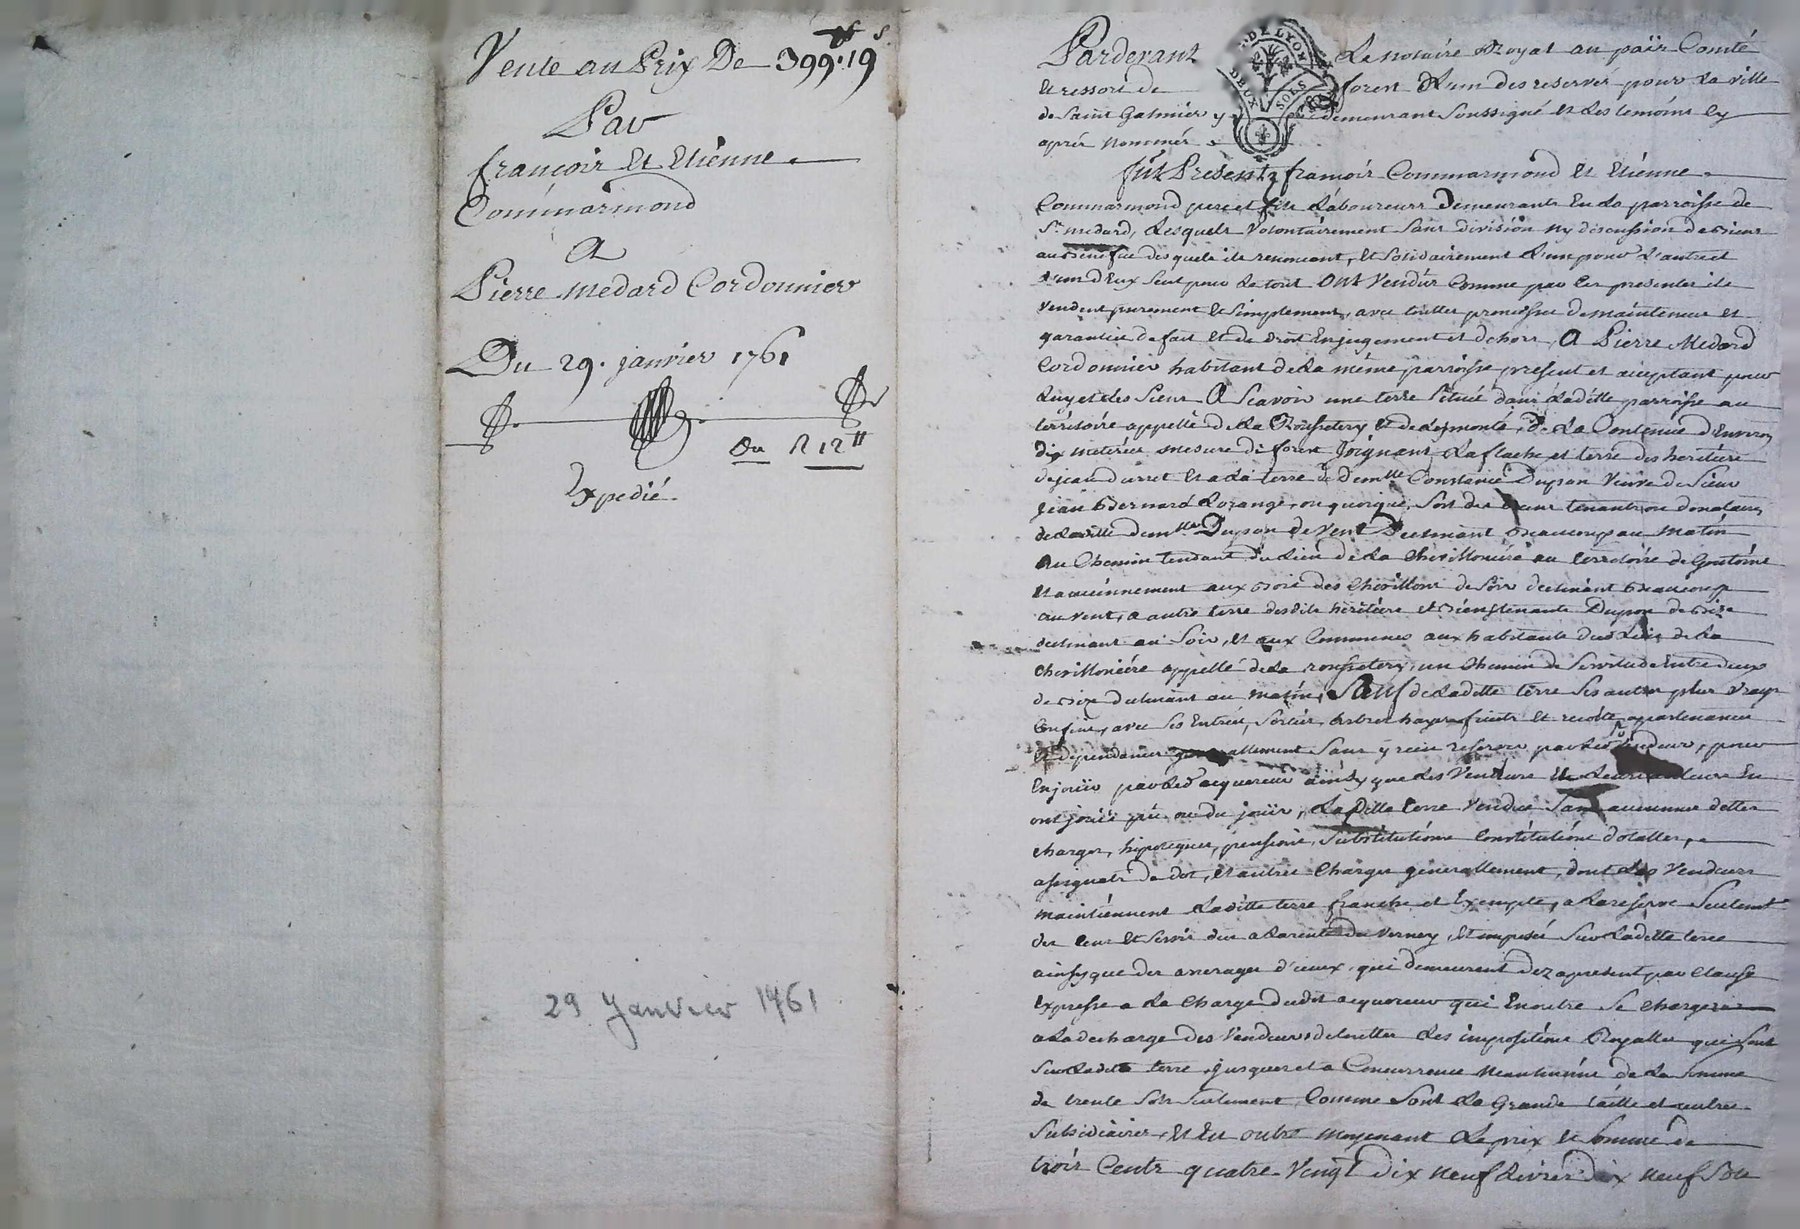 Vente au Prix De 399.tt 19 s
Par
françois Et Etiénne
Commarmond
A
Pierre Medard Cordonnier
Du 29. janvier 1761
Du R 12 tt
Expedié
29 Janvier 1761
DE LYON
DEUX SOLS
Pardevant Le Notaire Royal au païs Comté
Et ressort de forest L'un des reservés pour La ville
de Saint Galmier y demeurant Soussigné Et Les temoins Cy
aprés Nommés
fut Present françois Commarmond Et Etiénne
Commarmond pere et fils Laboureurs Demeurants En La parroisse de
St. medard, Lesquels Volontairement Sans division Ny discussion de biens
au benefice desquels ils renoncent, Et Solidairement L'un pour L'autre et
L'un d'Eux Seul pour Le tout Ont Vendus Comme par Ces presentes ils
Vendent purement Et Simplement, avec touttes promesses de maintenue Et
garantie de fait Et de droit En jugement et dehors, A Pierre Medard
Cordonnier habitant de La même parroisse present et acceptant pour
Luy et les Siens A Scavoir une terre Située dans Laditte parroisse au
térritoire appellé de La Et de La Contenue d'Environ
dix metérées mesure de forest Joignant La et terre des heritiérs
de jean durret Et a La terre de Demlle Constance Dupon Veuve de Sieur
jean Bernard ou quoique Soit des biens tenants ou donataires
de Laditte demlle Dupon de Vent Declinant Beaucoup au Matin
Au Chemin tendant du Lieu de La Chevilloniére au territoire de
Et anciennement aux bois des Chevillons de Soir declinant Beaucoup
au vent, a autre terre desdits heritiérs et biens tenants Dupon de bise
declinant au Soir, Et aux Communes aux habitants dud Lieu de La
Chevilloniére appellé de La un Chemin de Servitude Entre deux
de bize declinant au matin, Sauf de Laditte terre Ses autres plus Vrays
Confins, avec Ses Entrées, Sorties, arbres hayes fruits Et recolte, apartenances
Et dependances generallement Sans y rien reserver par Lesds Vendeurs, pour
En joüir par Led acquereur ainsy que Les Vendeurs Et Leurs auteurs En
ont joüis pû ou du joüir, Laditte terre Vendue Sans aucunnes dettes
charges, hipoteques, pensions, Substitutions Constitutions dotalles,
assignats de dot, Et autres Charges generallement, dont Les Vendeurs
maintiénnent Laditte terre franche et Exempte, a La reserve Seulemt
des Cens Et Servis dus a La rente du Verney, Et imposés Sur Laditte terre
ainsy que des arrerages d'iceux, qui demeurent dez apresent par Clause
Expresse a La Charge dudit acquereur qui En outre Se chargera
a La decharge des Vendeurs de Les impositions Royalles qui Sont
Sur Laditte terre jusques et a Concurrence Neantmoins de La Somme
de trente Sols Seulement Comme Sont La Grande taille et autres
Subsidiaires, Et En outre moyenant Le prix Et Somme de
trois Cents quatre Vingt dix neuf Livres dix neuf Sols